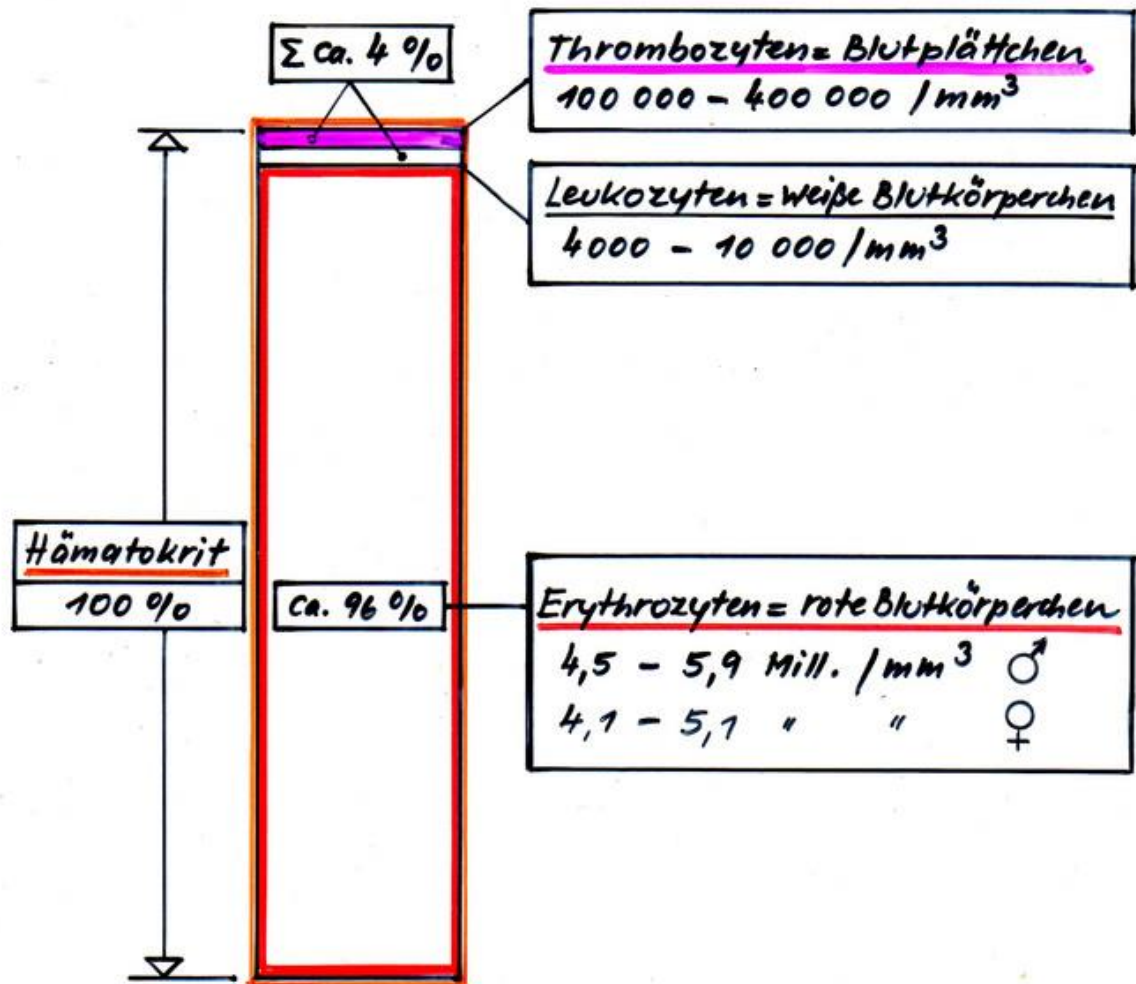 Σ ca. 4 %
Thrombozyten = Blutplättchen
100 000 – 400 000 /mm³
Leukozyten = weiße Blutkörperchen
4000 – 10 000 /mm³
Hämatokrit
100 %
ca. 96 %
Erythrozyten = rote Blutkörperchen
4,5 – 5,9 Mill. /mm³ ♂
4,1 – 5,1 " " ♀